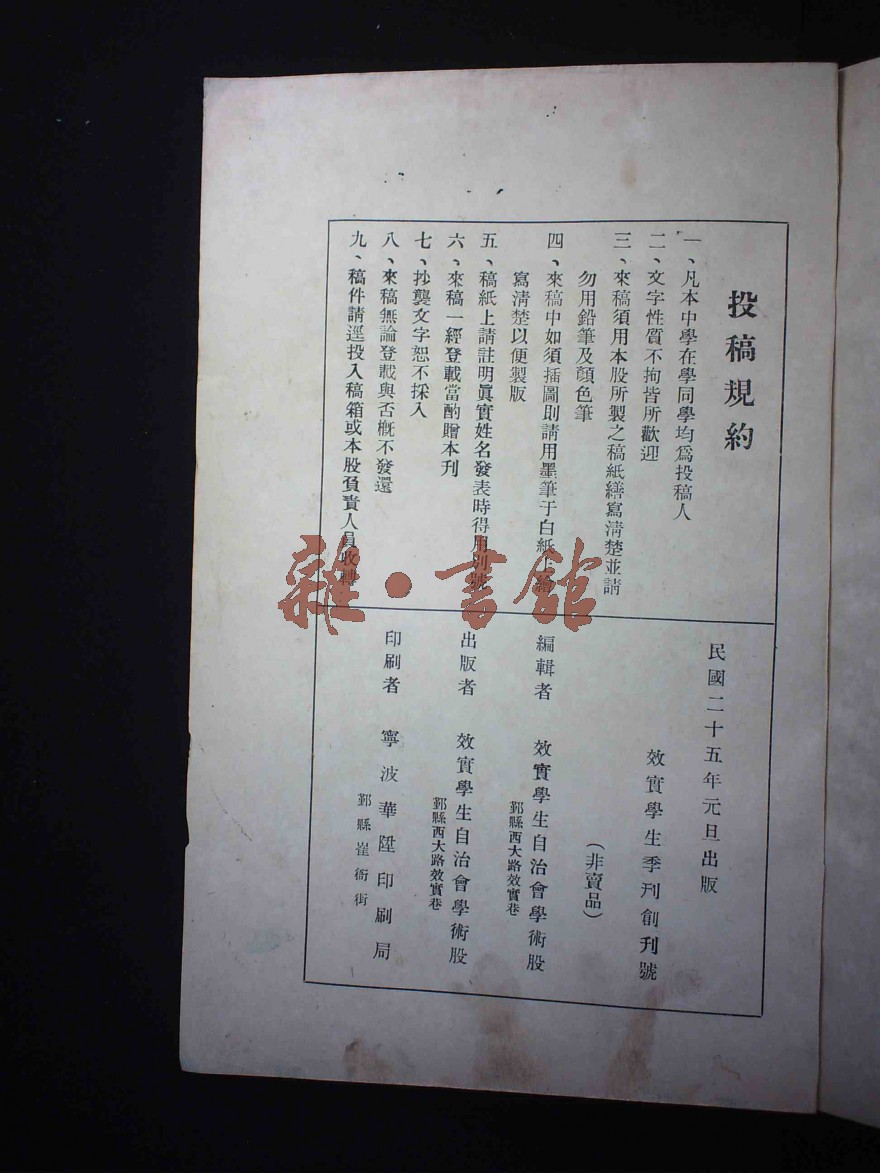 投稿規約
一、凡本中學在學同學均爲投稿人
二、文字性質不拘皆所歡迎
三、來稿須用本股所製之稿紙繕寫清楚並請
勿用鉛筆及顏色筆
四、來稿中如須插圖則請用墨筆于白紙上繪
寫清楚以便製版
五、稿紙上請註明眞實姓名發表時得用別號
六、來稿一經登載當酌贈本刊
七、抄襲文字恕不採入
八、來稿無論登載與否概不發還
九、稿件請逕投入稿箱或本股負責人員收轉
民國二十五年元旦出版
效實學生季刊創刊號
（非賣品）
編輯者 效實學生自治會學術股
鄞縣西大路效實巷
出版者 效實學生自治會學術股
鄞縣西大路效實巷
印刷者 寧波華陞印刷局
鄞縣崔衙街
雜·書館